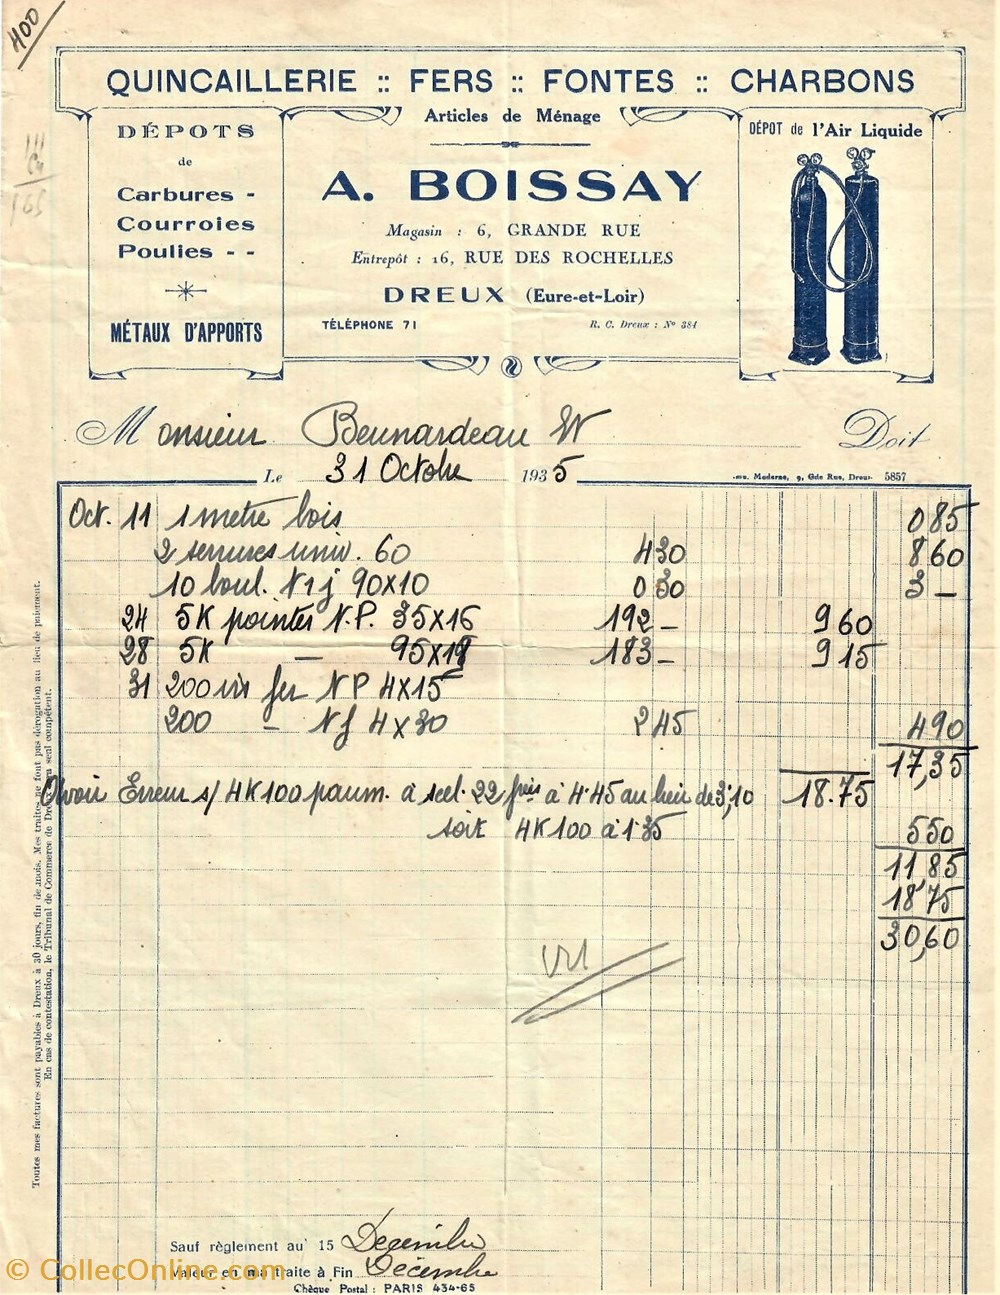 400
QUINCAILLERIE :: FERS :: FONTES :: CHARBONS
Articles de Ménage
DÉPOTS
de
Carbures -
Courroies
Poulies - -
MÉTAUX D'APPORTS
A. BOISSAY
Magasin : 6, GRANDE RUE
Entrepôt : 16, RUE DES ROCHELLES
DREUX (Eure-et-Loir)
TÉLÉPHONE 71
R. C. Dreux : Nº 384
DÉPOT de l'Air Liquide
Monsieur Beunardeau Doit
Le 31 Octobre 1935
Moderne, 9, Gde Rue, Dreux 5857
Oct. 11 1 metre bois 0 85
2 serrures univ. 60 4 30 8 60
10 boul. 90x10 0 30 3 -
24 5K pointes N.P. 35x16 192 - 9 60
28 5K — 95x19 183 - 9 15
31 200 vis fer NP 4x15
200 — 4x30 2 45 4 90
17,35
Erreur s/ 4K100 paum. à 22 à 4.45 au lieu de 3,10 18.75
soit 4K100 à 1.35 5 50
11,85
18 75
30,60
Toutes mes factures sont payables à Dreux à 30 jours, fin de mois. Mes traites ne font pas dérogation au lieu de paiement.
En cas de contestation, le Tribunal de Commerce de Dreux sera seul compétent.
Sauf règlement au 15 Decembre
Valeur en ma traite à Fin Décembre
Chèque Postal : PARIS 434-65
© CollecOnline.com